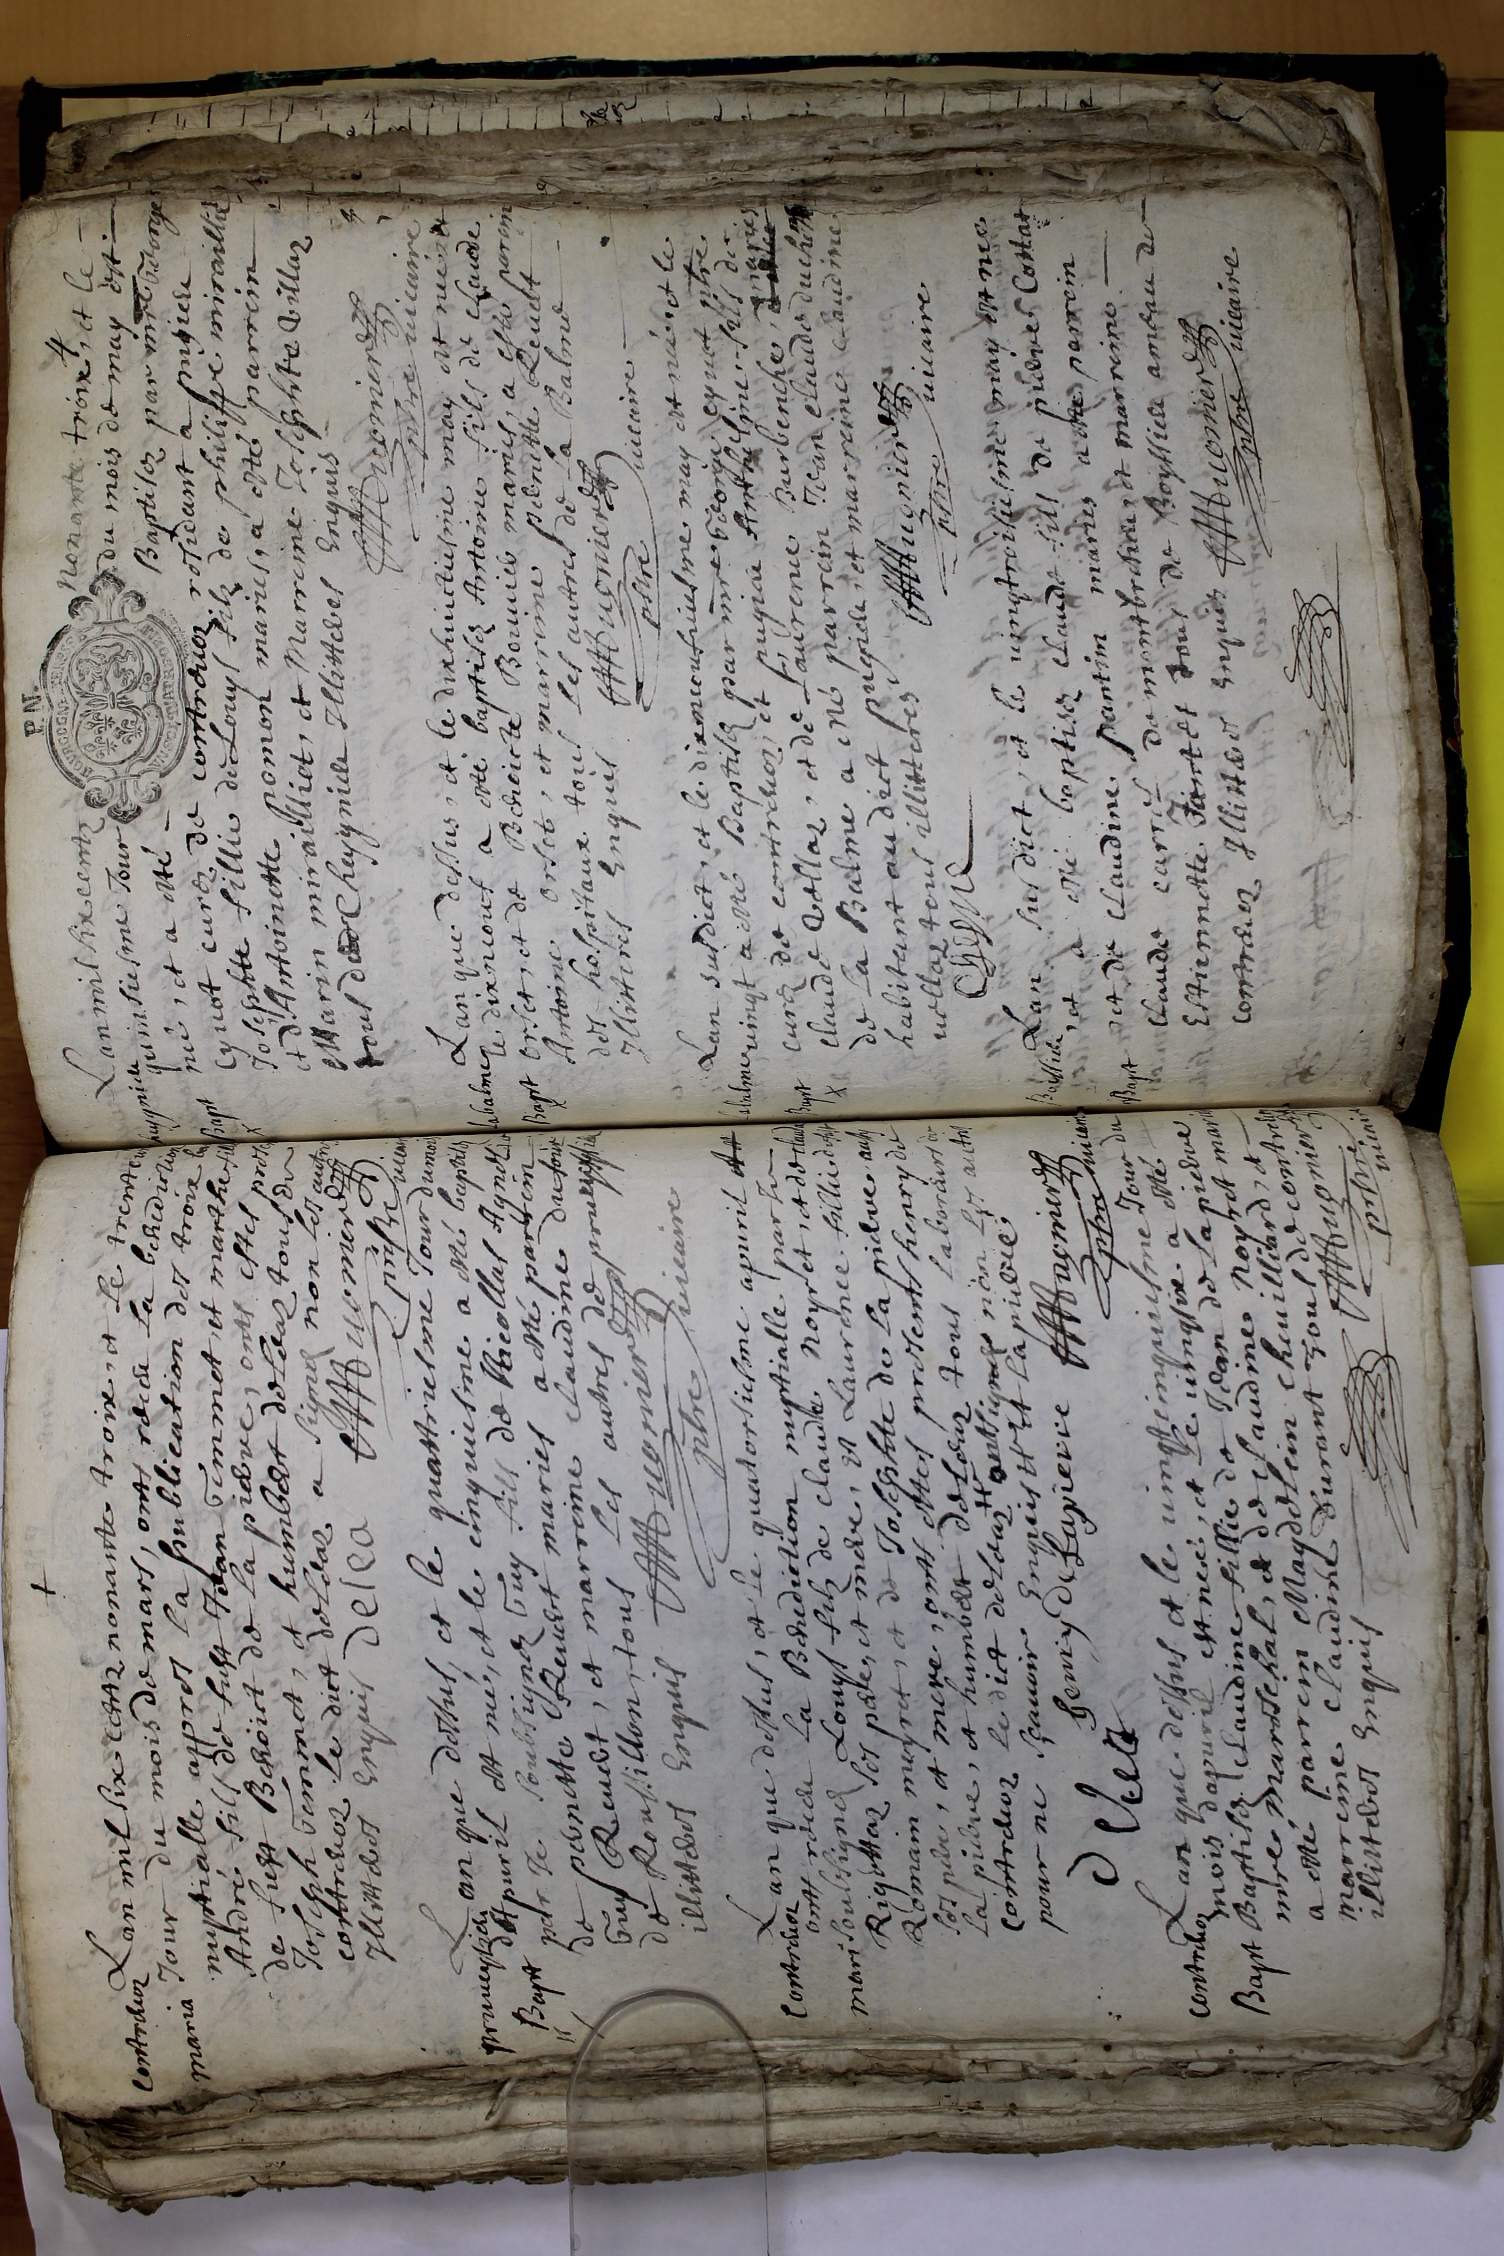 contrevoz
maria
Lan mil six centz nonante troix et le trente
Jour du mois de mars, ont receu la benediction
nuptialle appres la publication des troix
André fils de fust Jean Gemmet, et marthe fille
de fust Benoict de la pierre, ont estes presentz
Joseph Gemmet, et humbert deléaz tous de
contrevoz le dict deléaz a signé non les autres
Illitteres Enquis delea Hugonier
pbre vicaire
prumeyssieu
Bapt
Lan que dessus, et le quattriesme Jour du mois
dapuril est né, et le cinquiesme a esté baptisé
par le soubsigné Guy fils de Nicollas Aynet
de pernette Reuet mariés a esté parrein
Guy Reuet, et marreine claudine dufour
de Rousillon, tous les autres de prumeyssieu
illitteres Enquis Hugonier
pbre vicaire
contrevoz
mari
Lan que dessus, et le quatorsiesme apuril
ont receu la Benediction nuptialle par le
soubsigné Louys fils de claude Noyret, et de
Rigottaz ses pere, et mere, et Laurence fillie de
Romain meyret, et de Josephte de la pierre
ses pere, et mere, ont estes presents henry de
la pierre, et humbert deléaz tous laboureurs de
contrevoz le dict deléaz et la pierre
ont signés non les autres
pour ne scauoir Enquis
Henry De Lapierre Hugonier
delea pbre vicaire
contrevoz
Bapt
Lan que dessus et le uingtcinquiesme Jour du
mois dapuril est neé, et le uingtsix a esté
Baptisé claudine fillie de Jean de la pierre
mre mareschal, et de claudine Noyret mariés
a esté parrein Magdelein cheuilliard, et
marreine claudine Durant tous de contrevoz
illitteres Enquis Hugonier
pbre vicaire
P.N.
Lan mil six centz nonante troix, et le
quinsiesme Jour du mois de may est
né, et a esté Baptisée par mre George
Cynot curé de contrevoz, residant a pugieu
Josephte fillie de Louys fils de philippe miraillier
et d'Antoinette pomon mariés, a esté parrein
Marin mirailliet, et Marreine Josephte Villaz
tous de cheygnieu Illitteres Enquis
Hugonier
pbre vicaire
labalme
Bapt
Lan que dessus, et le dixhuictiesme may est né et
le dixneuf a esté baptisé Antoine fils de claude
orset, et de Benoicte Bouvié mariés, a esté parrein
Antoine orset, et marreine pernette Reuet
des hospitaux tous les autres de la Balme
Illitteres Enquis Hugonier
pbre vicaire
labalme
Bapt
Lan susdict, et le dixneufuiesme may est né et le
uingt a esté Baptisé par mre George cynot pbre
curé de contrevoz, et pugieu Anthelme fils de
claude Vellaz, et de Laurence Burbenche, mariés
de la Balme a esté parrein Jean claude duchesne
habitant au dict pugieu, et marreine claudine
uellaz tous illitteres. Hugonier
pbre vicaire
Boissieu
Bapt
Lan susdict, et le uingtroisiesme may est né
et a esté baptisé claude fils de pierre Cottat
et de claudine pantin mariés a esté parrein
claude carrel de montbresieu, et marreine
Estiennette Jantet tous de Boyssieu ameau de
contrevoz Illitteres Enquis Hugonier
pbre vicaire